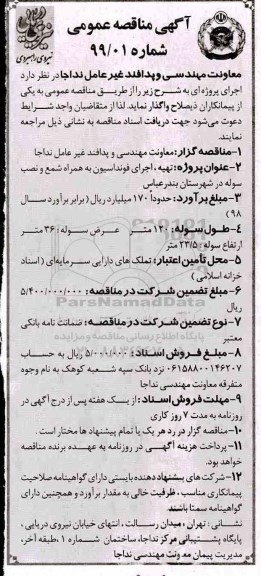 آگهی مناقصه عمومی
شماره ۹۹/۰۱
معاونت مهندسی و پدافند غیر عامل نداجا در نظر دارد
اجرای پروژه ای به شرح زیر را از طریق مناقصه عمومی به یکی
از پیمانکاران ذیصلاح واگذار نماید. لذا از متقاضیان واجد شرایط
دعوت می‌شود جهت دریافت اسناد مناقصه به نشانی ذیل مراجعه
نمایند.
۱-مناقصه گزار: معاونت مهندسی و پدافند غیر عامل نداجا
۲-عنوان پروژه: تهیه، اجرای فونداسیون به همراه شمع و نصب
سوله در شهرستان بندرعباس
۳-مبلغ برآورد: حدوداً ۱۷۰ میلیارد ریال (برابر برآورد سال
۹۸)
۴-طول سوله: ۱۲۰ متر عرض سوله: ۳۶ متر
ارتفاع سوله: ۲۳/۵ متر
۵-محل تأمین اعتبار: تملک های دارایی سرمایه‌ای (اسناد
خزانه اسلامی)
۶-مبلغ تضمین شرکت در مناقصه: ۵/۴۰۰/۰۰۰/۰۰۰
ریال
۷-نوع تضمین شرکت در مناقصه: ضمانت نامه بانکی
معتبر
۸-مبلغ فروش اسناد: ۵/۰۰۰/۰۰۰ ریال به حساب
۰۶۱۵۸۸۰۰۱۴۶۲۰۷ نزد بانک سپه شعبه کوهک به نام وجوه
متفرقه معاونت مهندسی نداجا
۹-مهلت فروش اسناد: از یک هفته پس از درج آگهی در
روزنامه به مدت ۷ روز کاری
۱۰-مناقصه گزار در رد هر یک یا تمام پیشنهاد ها مختار است.
۱۱-پرداخت هزینه آگهی در روزنامه به عهده برنده مناقصه
خواهد بود.
۱۲-شرکت های پیشنهاد دهنده بایستی دارای گواهینامه صلاحیت
پیمانکاری مناسب، ظرفیت خالی به مقدار برآورد و همچنین دارای
گواهینامه سمتا باشند
نشانی: تهران، میدان رسالت، انتهای خیابان نیروی دریایی،
پایگاه پشتیبانی مرکز نداجا، ساختمان شماره ۱، طبقه آخر،
مدیریت پیمان معاونت مهندسی نداجا
ParsNamadData